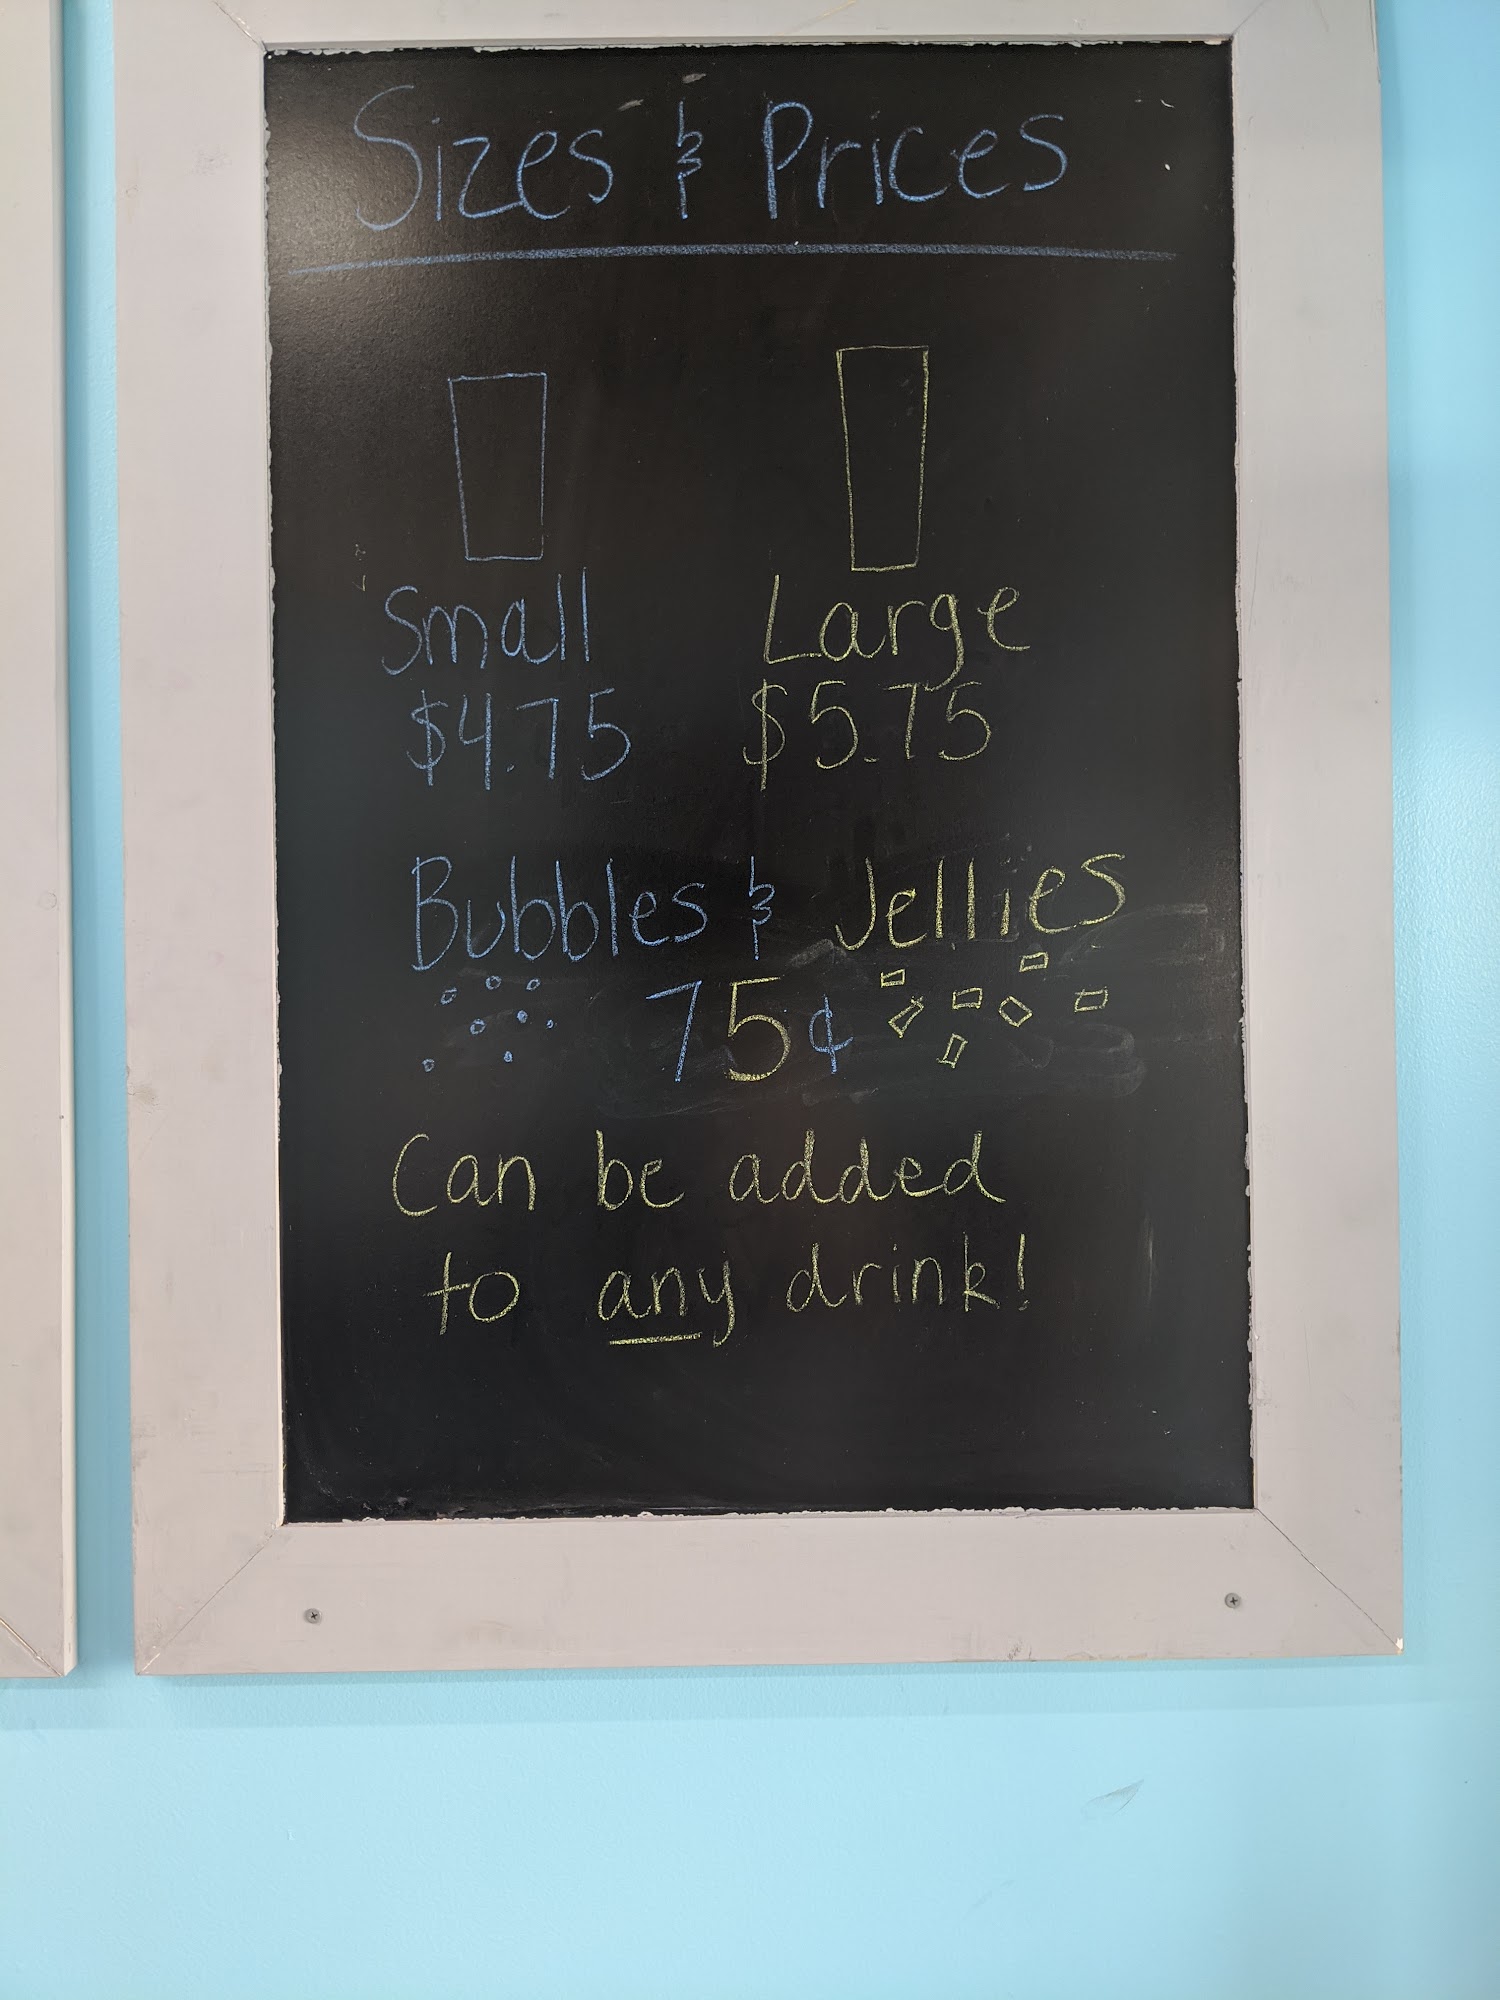 Sizes & Prices
Small Large
$4.75 $5.75
Bubbles & Jellies
75¢
Can be added
to any drink!